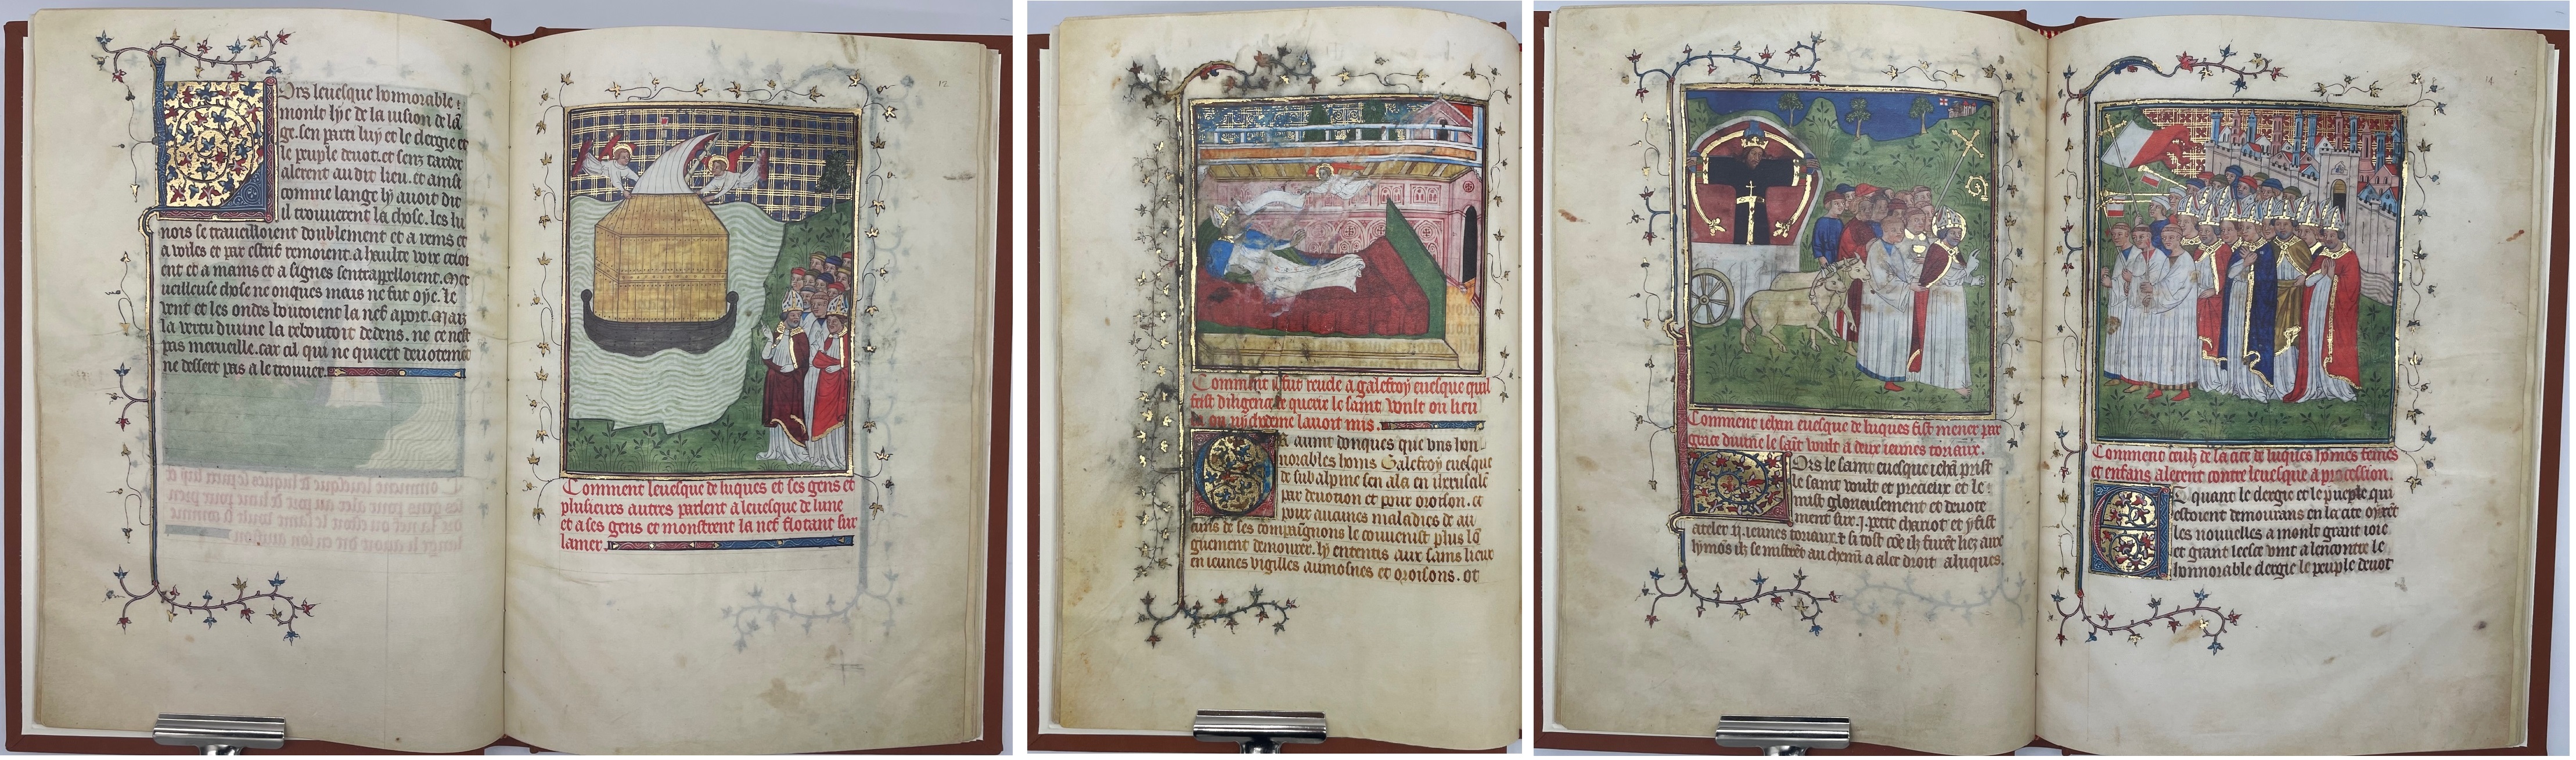 Ors leuesque honnorable ⁊
moult lye de la uision de lā
ge. sen parti luy et le clergie et
le peuple deuot. et sens tarder
alerent au dit lieu. et ainsi
comme lange ly auoit dit
il trouuerent la chose. les lu
nois se traueilloient doublement et a rems et
a voiles et par estrif remoient a haulte voix crioi
ent et a mains et a signes sentrappelloient. Mer
ueilleuse chose ne onques mais ne fut oye. le
vent et les ondes boutoient la nef aport. Mais
la vertu diuine la reboutoit dedens. ne ce nest
pas merueille. car cil qui ne quiert deuotemēt
ne dessert pas a le trouuer.
12
Comment leuesque de luques et ses gens et
plusieurs autres parlent a leuesque de lune
et a ses gens et monstrent la nef flotant sur
lamer.
Comment il fut reuele a galefroy euesque quil
feist diligence querir le saint voult ou lieu
ou nychodeme lauoit mis.
aunit donques que uns hon
norables homs Galefroy euesque
de subalpine sen ala en iherusalē
par deuotion et pour oroison. et
pour aucunes maladies de au
cuns de ses compaignons le conuenist plus lō
guement demourer. ly ententis aux sains lieux
en ieunes vigilles aumosnes et oroisons. ot
Comment iehan euesque de luques fist mener par
grace diuine le sait voult a deux ieunes toriaux.
Ors le saint euesque iehā prist
le saint voult et precieux et le
mist glorieusement et deuote
ment sur .j. petit chariot et y fist
ateler .ij. ieunes toriaux. ⁊ si tost cōe ilz furēt liez aux
lymōs ilz se mistrēt au chemī a aler droit aluques.
14
Comment ceulz de la cite de luques hōmes femes
et enfans alerent contre leuesque a procession.
Et quant le clergie et le pueple qui
estoient demourans en la cite oyrēt
les nouuelles a moult grant ioie
et grant leesce vint a lencontre le
honnorable clergie le peuple deuot